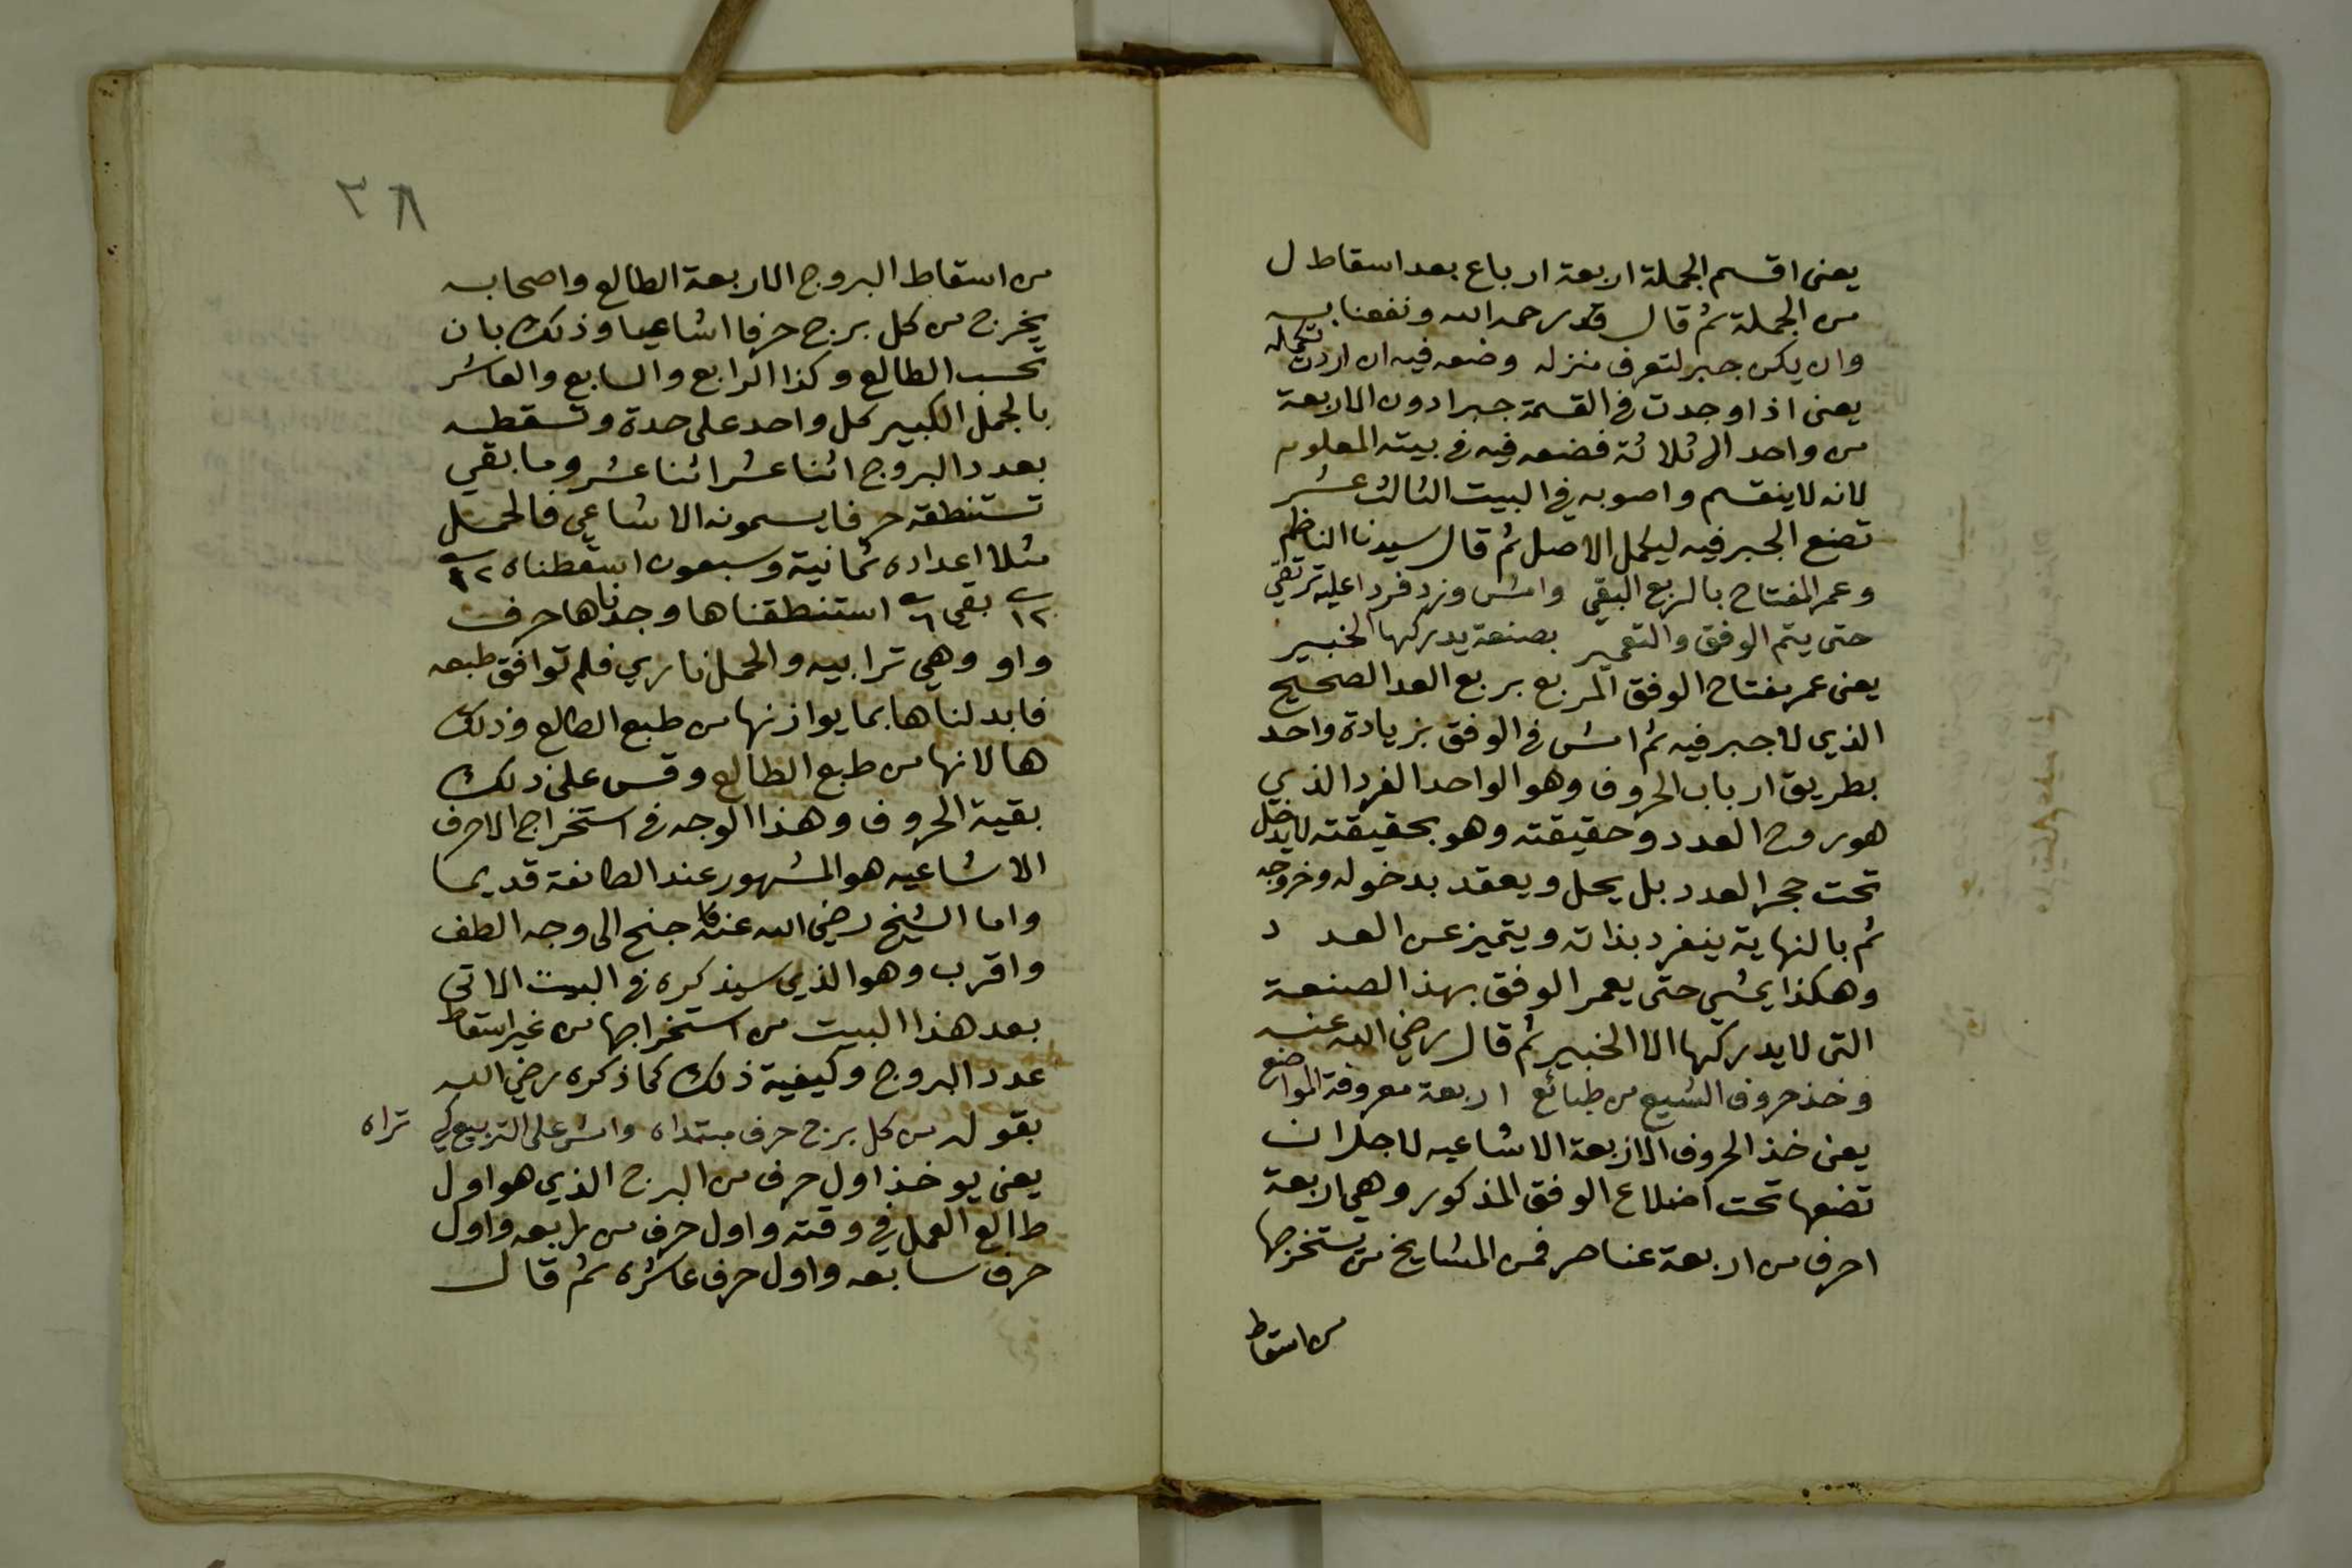 يعنى اقسم الجملة اربعة ارباع بعد اسقاط ل
من الجملة ثم قال قدر رحمه الله ونفعنا به
وان يكن جبر لتعرف منزله وضعه فيه ان اردت تكمله
يعنى اذا وجدت فى القسمة جبرا دون الاربعة
من واحد الى ثلاثة فضعه فيه فى بيته المعلوم
لانه لا ينقسم واصوبه في البيت الثالث عشر
تضع الجبر فيه ليكمل الاصل ثم قال سيدنا الناظم
وعمر المفتاح بالربع البقي وامش وزد فردا عليه ترتقي
حتى يتم الوفق والتعمير بصنعة يدركها الخبير
يعنى عمر مفتاح الوفق المربع بربع العدد الصحيح
الذي لا جبر فيه ثم امش فى الوفق بزيادة واحد
بطريق ارباب الحروف وهو الواحد الفرد الذي
هو روح العدد وحقيقته وهو بحقيقته لا يدخل
تحت حجر العدد بل يحل ويعقد بدخوله وخروجه
ثم بالنهاية ينفرد بذاته ويتميز عن العدد
وهكذا يمشي حتى يعمر الوفق بهذا الصنعة
التى لا يدركها الا الخبير ثم قال رضي الله عنه
وخذ حروف الشيع من طبائع اربعة معروفة المواضع
يعنى خذ الحروف الاربعة الاشاعيه لاجل ان
تضعها تحت اضلاع الوفق المذكور وهي اربعة
احرف من اربعة عناصر فمن المشايخ من يستخرجها
من اسقاط
٣٨
من اسقاط البروج الاربعة الطالع واصحابه
يخرج من كل برج حرفا اشاعيا وذلك بان
تحسب الطالع وكذا الرابع والسابع والعاشر
بالجمل الكبير كل واحد على حدة وتسقطه
بعدد البروج اثنا عشر اثنا عشر وما بقي
تستنطقه حرفا يسمونه الاشاعي فالحمل
مثلا اعداده ثمانية وسبعون اسقطناه ١٢
١٢ بقى ٦ استنطقناها وجدناها حرف
واو وهي ترابيه والحمل ناري فلم توافق طبعه
فابدلناها بما يوازنها من طبع الطالع وذلك
ها لانها من طبع الطالع وقس على ذلك
بقية الحروف وهذا الوجه فى استخراج الاحرف
الاشاعيه هو المشهور عند الطائفة قديما
واما الشيخ رضي الله عنه فانه جنح الى وجه الطف
واقرب وهو الذي سيذكره فى البيت الاتى
بعد هذا البيت من استخراجها من غير اسقاط
عدد البروج وكيفية ذلك كما ذكره رضي الله
بقوله من كل برج حرف مبتداه وامش على التربيع كي تراه
يعنى يوخذ اول حرف من البرج الذي هو اول
طالع العمل في وقته واول حرف من رابعه واول
حرف سابعه واول حرف عاشره ثم قال